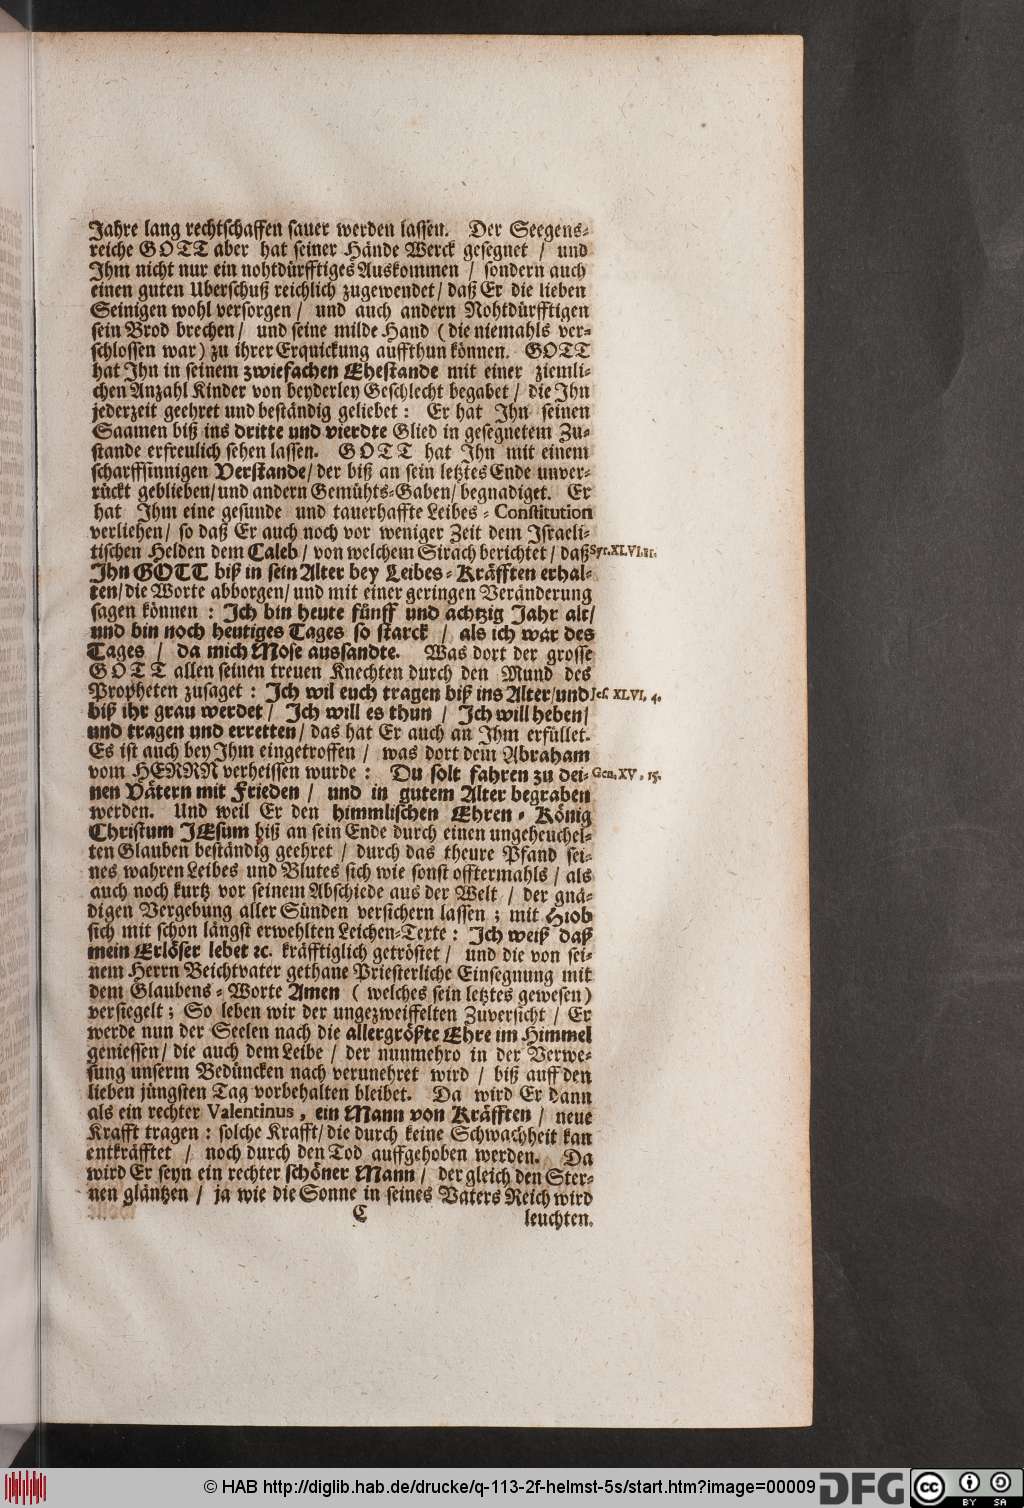 Jahre lang rechtschaffen sauer werden lassen. Der Seegens-
reiche GOTT aber hat seiner Hände Werck gesegnet / und
Ihm nicht nur ein nohtdürfftiges Auskommen / sondern auch
einen guten Uberschuß reichlich zugewendet / daß Er die lieben
Seinigen wohl versorgen / und auch andern Nohtdürfftigen
sein Brod brechen / und seine milde Hand ( die niemahls ver-
schlossen war ) zu ihrer Erquickung auffthun können. GOTT
hat Ihn in seinem zwiefachen Ehestande mit einer ziemli-
chen Anzahl Kinder von beyderley Geschlecht begabet / die Ihn
jederzeit geehret und beständig geliebet : Er hat Ihn seinen
Saamen biß ins dritte und vierdte Glied in gesegnetem Zu-
stande erfreulich sehen lassen. GOTT hat Ihn mit einem
scharffsinnigen Verstande / der biß an sein letztes Ende unver-
rückt geblieben / und andern Gemühts-Gaben / begnadiget. Er
hat Ihm eine gesunde und tauerhaffte Leibes - Constitution
verliehen / so daß Er auch noch vor weniger Zeit dem Israeli-
tischen Helden dem Caleb / von welchem Sirach berichtet / daß Syr. XLVI.
Ihn GOTT biß in sein Alter bey Leibes - Kräfften erhal-
ten / die Worte abborgen / und mit einer geringen Veränderung
sagen können : Ich bin heute fünff und achtzig Jahr alt /
und bin noch heutiges Tages so starck / als ich war des
Tages / da mich Mose aussandte. Was dort der grosse
GOTT allen seinen treuen Knechten durch den Mund des
Propheten zusaget : Ich wil euch tragen biß ins Alter / und Jes. XLVI, 4.
biß ihr grau werdet / Ich will es thun / Ich will heben /
und tragen und erretten / das hat Er auch an Ihm erfüllet.
Es ist auch bey Ihm eingetroffen / was dort dem Abraham
vom HERRN verheissen wurde : Du solt fahren zu dei- Gen. XV, 15.
nen Vätern mit Frieden / und in gutem Alter begraben
werden. Und weil Er den himmlischen Ehren - König
Christum JEsum biß an sein Ende durch einen ungeheuchel-
ten Glauben beständig geehret / durch das theure Pfand sei-
nes wahren Leibes und Blutes sich wie sonst offtermahls / als
auch noch kurtz vor seinem Abschiede aus der Welt / der gnä-
digen Vergebung aller Sünden versichern lassen ; mit Hiob
sich mit schon längst erwehlten Leichen-Texte : Ich weiß daß
mein Erlöser lebet ꝛc. kräfftiglich getröstet / und die von sei-
nem Herrn Beichtvater gethane Priesterliche Einsegnung mit
dem Glaubens - Worte Amen ( welches sein letztes gewesen )
versiegelt ; So leben wir der ungezweiffelten Zuversicht / Er
werde nun der Seelen nach die allergrößte Ehre im Himmel
geniessen / die auch dem Leibe / der nunmehro in der Verwe-
sung unserm Bedüncken nach verunehret wird / biß auff den
lieben jüngsten Tag vorbehalten bleibet. Da wird Er dann
als ein rechter Valentinus, ein Mann von Kräfften / neue
Krafft tragen : solche Krafft / die durch keine Schwachheit kan
entkräfftet / noch durch den Tod auffgehoben werden. Da
wird Er seyn ein rechter schöner Mann / der gleich den Ster-
nen gläntzen / ja wie die Sonne in seines Vaters Reich wird
C leuchten.
© HAB http://diglib.hab.de/drucke/q-113-2f-helmst-5s/start.htm?image=00009 DFG cc BY SA